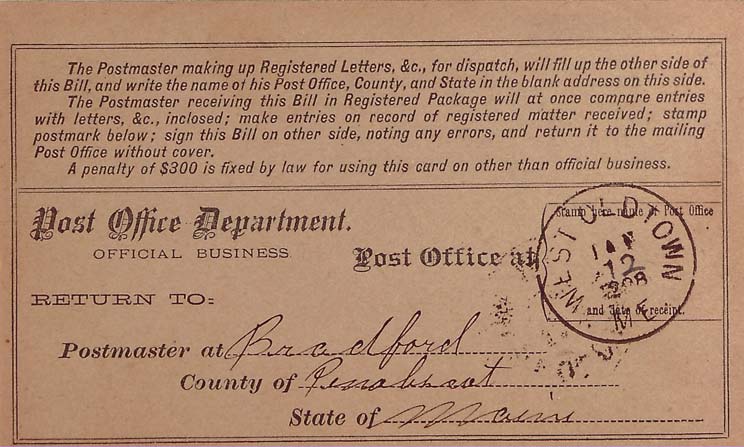 The Postmaster making up Registered Letters, &c., for dispatch, will fill up the other side of
this Bill, and write the name of his Post Office, County, and State in the blank address on this side.
The Postmaster receiving this Bill in Registered Package will at once compare entries
with letters, &c., inclosed; make entries on record of registered matter received; stamp
postmark below; sign this Bill on other side, noting any errors, and return it to the mailing
Post Office without cover.
A penalty of $300 is fixed by law for using this card on other than official business.
Post Office Department.
OFFICIAL BUSINESS.
Stamp here name of Post Office
WEST OLDTOWN
Post Office at
12
and date of receipt.
ME
RETURN TO:
Postmaster at Bradford
County of Penobscot
State of Maine